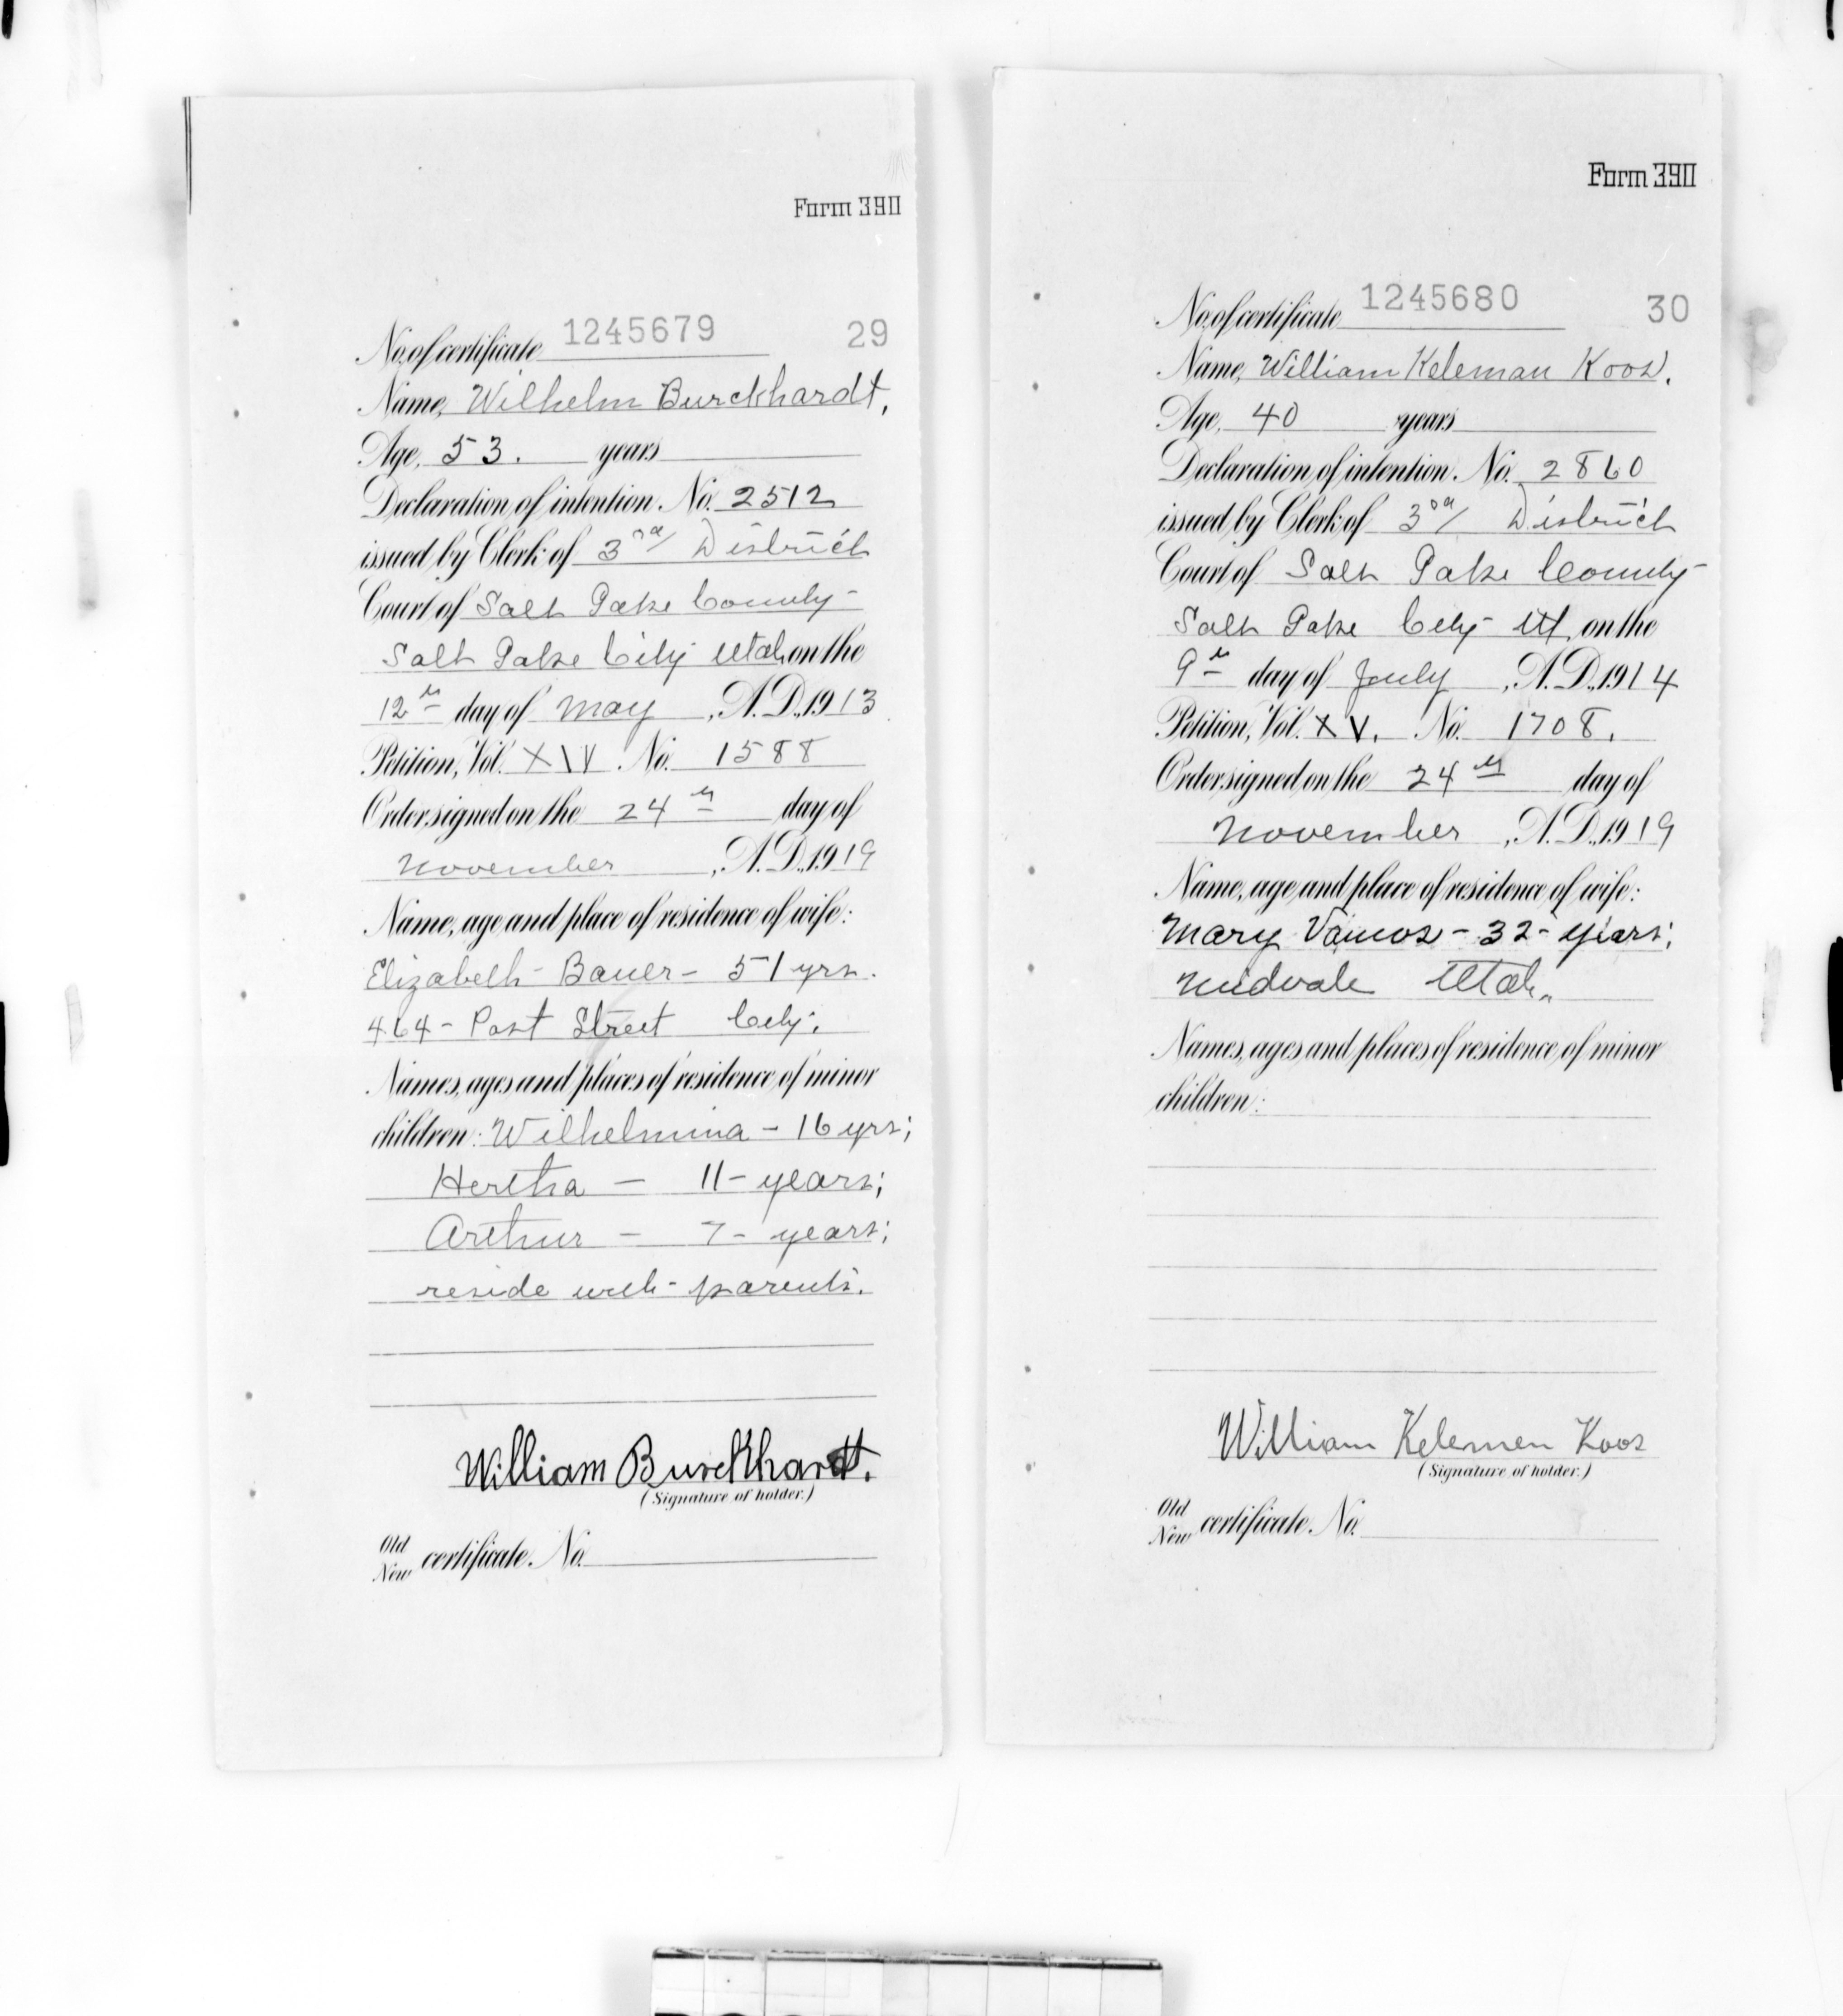 Form 390
No. of certificate 1245679 29
Name, Wilhelm Burckhardt,
Age, 53. years
Declaration of intention, No. 2512
issued by Clerk of 3rd District
Court of Salt Lake County
Salt Lake City Utah on the
12th day of May, A.D., 1913
Petition, Vol. XIV No. 1588
Order signed on the 24th day of
November, A.D., 1919
Name, age and place of residence of wife:
Elizabeth Bauer - 51 yrs.
464 - Post Street City.
Names, ages and places of residence of minor
children: Wilhelmina - 16 yrs;
Hertha - 11 - years;
Arthur - 7 - years;
reside with parents.
William Burckhardt.
(Signature of holder.)
Old
New certificate No.
Form 390
No. of certificate 1245680 30
Name, William Keleman Koos.
Age, 40 years
Declaration of intention, No. 2860
issued by Clerk of 3rd District
Court of Salt Lake County
Salt Lake City Ut, on the
9th day of July, A.D., 1914
Petition, Vol. XV. No. 1708.
Order signed on the 24th day of
November, A.D., 1919
Name, age and place of residence of wife:
Mary Vamos - 32 - years;
Midvale Utah.
Names, ages and places of residence of minor
children:
William Kelemen Koos
(Signature of holder.)
Old
New certificate No.